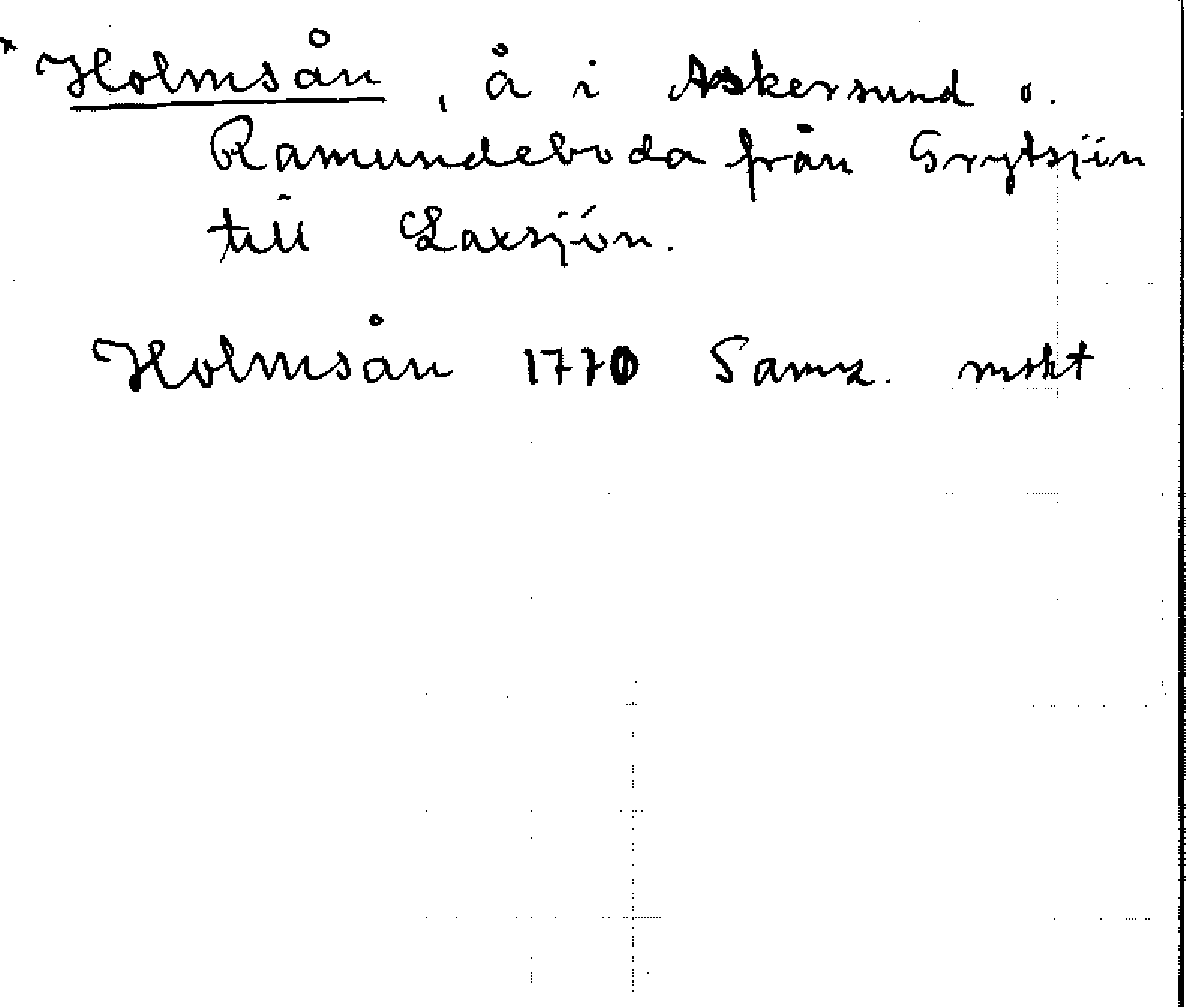 Holmsån, å i Askersund o.
Ramundeboda från Grytsjön
till Laxsjön.
Holmsån 1770 Saml. mskt